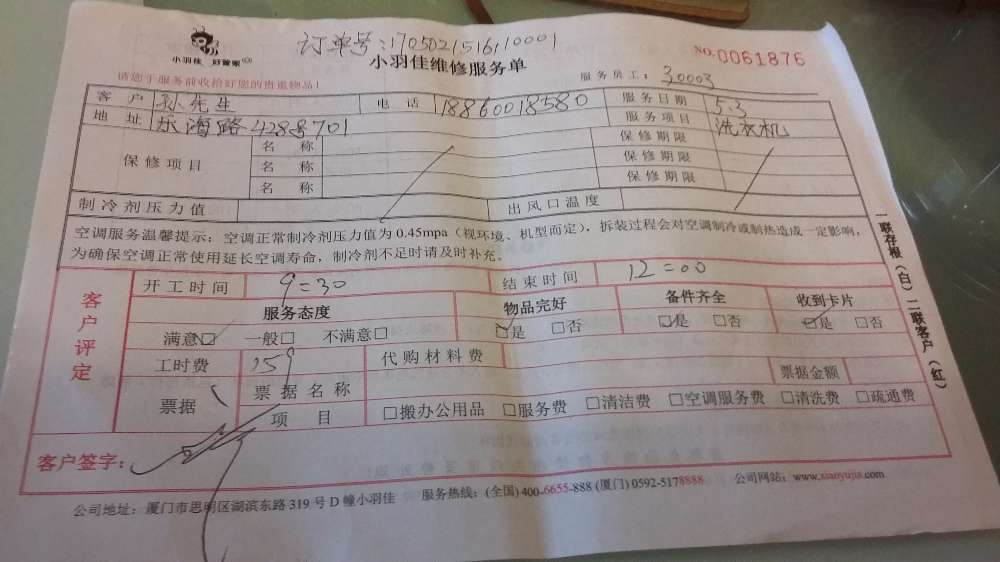 订单号:170502151611001
小羽佳 好管家
小羽佳维修服务单
NO.0061876
请您于服务前收拾好您的贵重物品!
服务员工: 30003
客户 孙先生 电话 18860018580 服务日期 5.3
地址 乐海路428号701 服务项目 洗衣机
保修项目 名称 保修期限
名称 保修期限
名称 保修期限
制冷剂压力值 出风口温度
空调服务温馨提示:空调正常制冷剂压力值为0.45mpa(视环境、机型而定),拆装过程会对空调制冷或制热造成一定影响,
为确保空调正常使用延长空调寿命,制冷剂不足时请及时补充。
客户评定
开工时间 9:30 结束时间 12:00
服务态度 物品完好 备件齐全 收到卡片
满意□ 一般□ 不满意□ □是 □否 □是 □否 □是 □否
工时费 159 代购材料费
票据 票据名称 票据金额
项目 □搬办公用品 □服务费 □清洁费 □空调服务费 □清洗费 □疏通费
客户签字:
公司地址:厦门市思明区湖滨东路319号D幢小羽佳 服务热线:(全国)400-6655-888 (厦门)0592-5178888 公司网站:www.xiaoyujia.com
一联存根(白)二联客户(红)